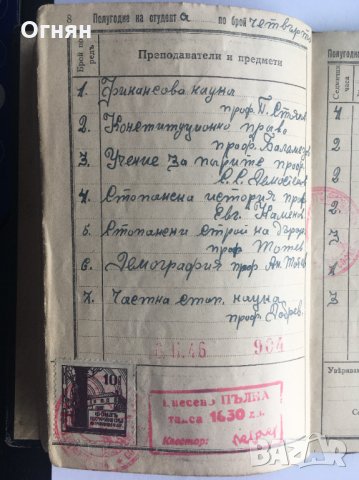 Огнян
8
Полугодие на студент а по брой четвърто
Брой по редъ
Преподаватели и предмети
1. Финансова наука
проф. П. Стоянов
2. Конституционно право
проф. Баламезов
3. Учение за парите проф.
С.С. Демостенов
4. Стопанска история проф
Евг. Каменов
5. Стопански строй на
проф. Тотев
6. Демография проф Ан. Тотев
7. Частна стоп. наука
проф. Добрев.
46 904
10
Внесена ПЪЛНА
такса 1630 лв.
Квестор:
Полугодие
Седмични часа
2
2
2
4
2
2
BAZAR